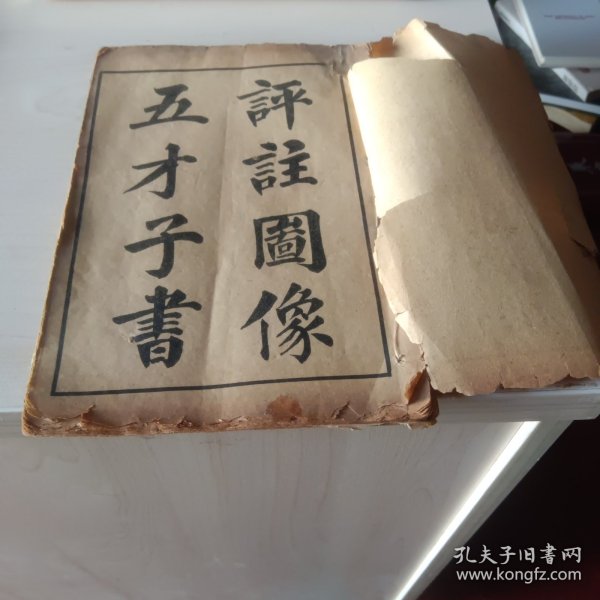 評註圖像
五才子書
孔夫子旧書网
www.kongfz.com